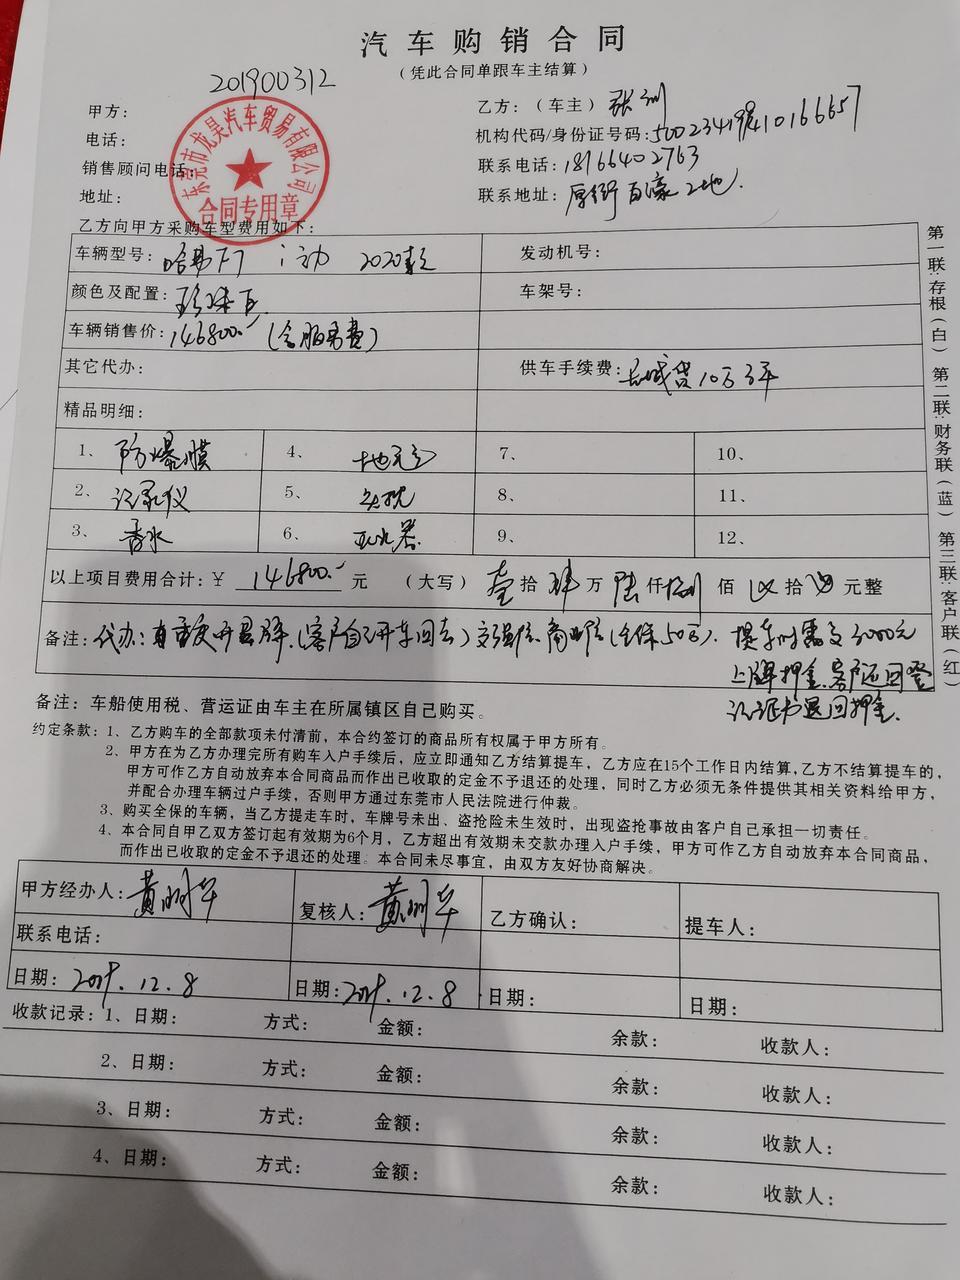 汽车购销合同
(凭此合同单跟车主结算)
201900312
甲方:
乙方:(车主)张
电话:
机构代码/身份证号码:
销售顾问电话:
联系电话:18166402763
地址:
联系地址:厚街百濠2地.
东莞市龙昊汽车贸易有限公司
合同专用章
乙方向甲方采购车型费用如下:
车辆型号:哈弗F7 i动 2020款
发动机号:
颜色及配置:珍珠白
车架号:
车辆销售价:146800.-(含服务费)
其它代办:
供车手续费:长城贷10万3年
精品明细:
1、防爆膜
4、地毛
7、
10、
2、记录仪
5、头枕
8、
11、
3、香水
6、灭火器
9、
12、
以上项目费用合计:¥ 146800.- 元 (大写) 壹拾肆万陆仟捌佰 拾 元整
备注:代办:重庆开县牌.(客户自己开车回去)交强险.商业险(全保50万).提车时需交3000元
上牌押金.客户还回登
记证书退回押金.
备注:车船使用税、营运证由车主在所属镇区自己购买。
约定条款:1、乙方购车的全部款项未付清前,本合约签订的商品所有权属于甲方所有。
2、甲方在为乙方办理完所有购车入户手续后,应立即通知乙方结算提车,乙方应在15个工作日内结算,乙方不结算提车的,
甲方可作乙方自动放弃本合同商品而作出已收取的定金不予退还的处理,同时乙方必须无条件提供其相关资料给甲方,
并配合办理车辆过户手续,否则甲方通过东莞市人民法院进行仲裁。
3、购买全保的车辆,当乙方提走车时,车牌号未出、盗抢险未生效时,出现盗抢事故由客户自己承担一切责任。
4、本合同自甲乙双方签订起有效期为6个月,乙方超出有效期未交款办理入户手续,甲方可作乙方自动放弃本合同商品,
而作出已收取的定金不予退还的处理。本合同未尽事宜,由双方友好协商解决。
甲方经办人:黄华
复核人:黄华
乙方确认:
提车人:
联系电话:
日期:2019.12.8
日期:2019.12.8
日期:
日期:
收款记录:1、日期: 方式: 金额: 余款: 收款人:
2、日期: 方式: 金额: 余款: 收款人:
3、日期: 方式: 金额: 余款: 收款人:
4、日期: 方式: 金额: 余款: 收款人:
第一联:存根(白) 第二联:财务联(蓝) 第三联:客户联(红)